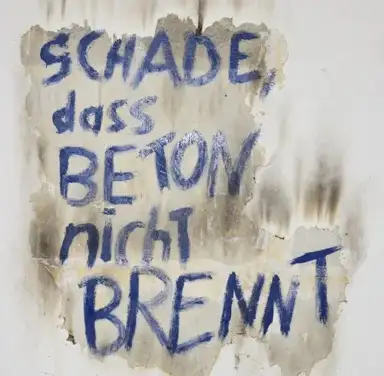 SCHADE,
dass
BETON
nicht
BRENNT